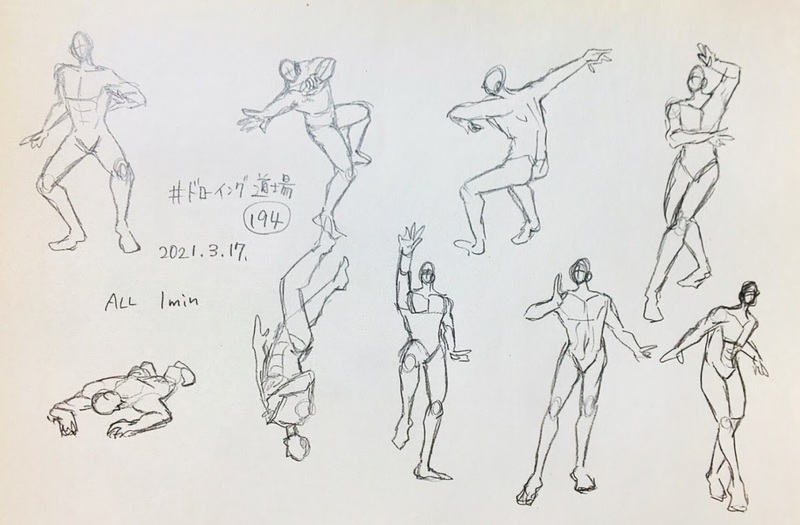 #ドローイング道場
194
2021.3.17.
ALL 1min